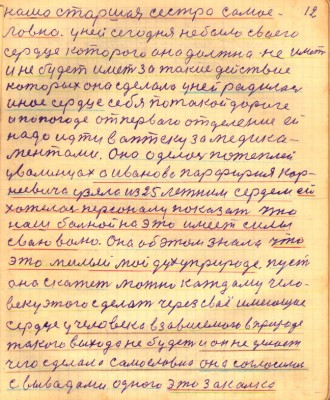 наша старшая сестра самое- 12
ловно. у ней сегодня не было своего
сердце которого она должна не имет
и не будет имет за такие действие
которых она сделала у ней родилася
иное сердце себя по такой дороге
и по погоде от первого отделение ей
надо идти в аптеку за медика-
ментами. Она оделас потеплей
у валинцах а иванова парфирия кор-
неевича узяла из 25 летним сердем ей
хотелос персоналу показат что
наш болной на это имеет силы
сваю волю. Она об этом знала что
это милый мой дух у природе. пуст
она скажет можно каждому чело-
веку этого сделат через своё имеющае
сердце у человека в зависемого в природе
такого выхода не будет и он не думает
чего сделал Самословна она согласилас
с вывадами одного это закалка